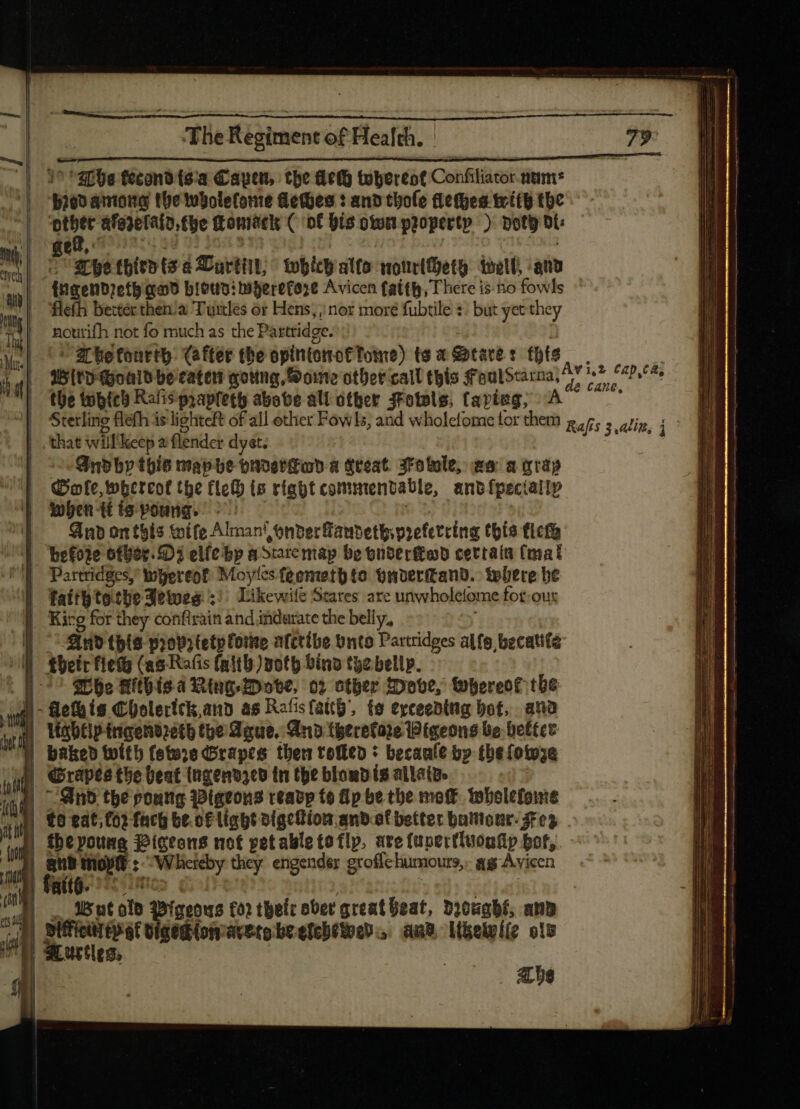 The Regiment of Health. 79
The second is a Capon, the flesh whereof Confiliator num-
bred among the wholesome fleshes : and those fleshes with the
other aforesaid, the stomack ( of his own property ) doth di-
gest.
The third is a Turtill, which also nourisheth well, and
ingendreth good bloud: wherefore Avicen saith, There is no fowls
flesh better then a Turtles or Hens, nor more subtile : but yet they
nourish not so much as the Partridge.
The fourth (after the opinion of some) is a Stare : this
Bird should be eaten young. Some other call this Foul Starna,
the which Rasis prayseth above all other Fowls, saying, A
Sterling flesh is lightest of all other Fowls, and wholesome for them
that will keep a slender dyet.
Av i,2 cap, ca,
de cane,
Rasis 3.alin,
And by this may be understood a great Fowle, as a gray
Goose, whereof the flesh is right commendable, and specially
when it is young.
And on this wise Alman, understandeth, preferring this flesh
before other. Or else by a Stare may be understood certain smal
Partridges, whereof Moyses seemeth to understand, where he
saith to the Jewes : Likewise Stares are unwholesome for our
King for they constrain and indurate the belly.
And this propriety some ascribe unto Partridges also, because
their flesh (as Rasis saith) doth bind the belly.
The fifth is a Ring-Dove, or other Dove, whereof the
flesh is Cholerick, and as Rasis saith, is exceeding hot, and
lightly ingendreth the Ague. And therefore Pigeons be better
baked with sowre Grapes then rosted : because by the sowre
Grapes the heat ingendred in the bloud is allaid.
And the young Pigeons ready to fly be the most wholesome
to eat, for such be of light digestion and of better humour. For
the young Pigeons not yet able to fly, are superfluously hot,
and moyst : Whereby they engender grosse humours, as Avicen
saith.
But old Pigeons for their over great heat, drought, and
difficulty of digestion are to be eschewed, and likewise old
Turtles.
The